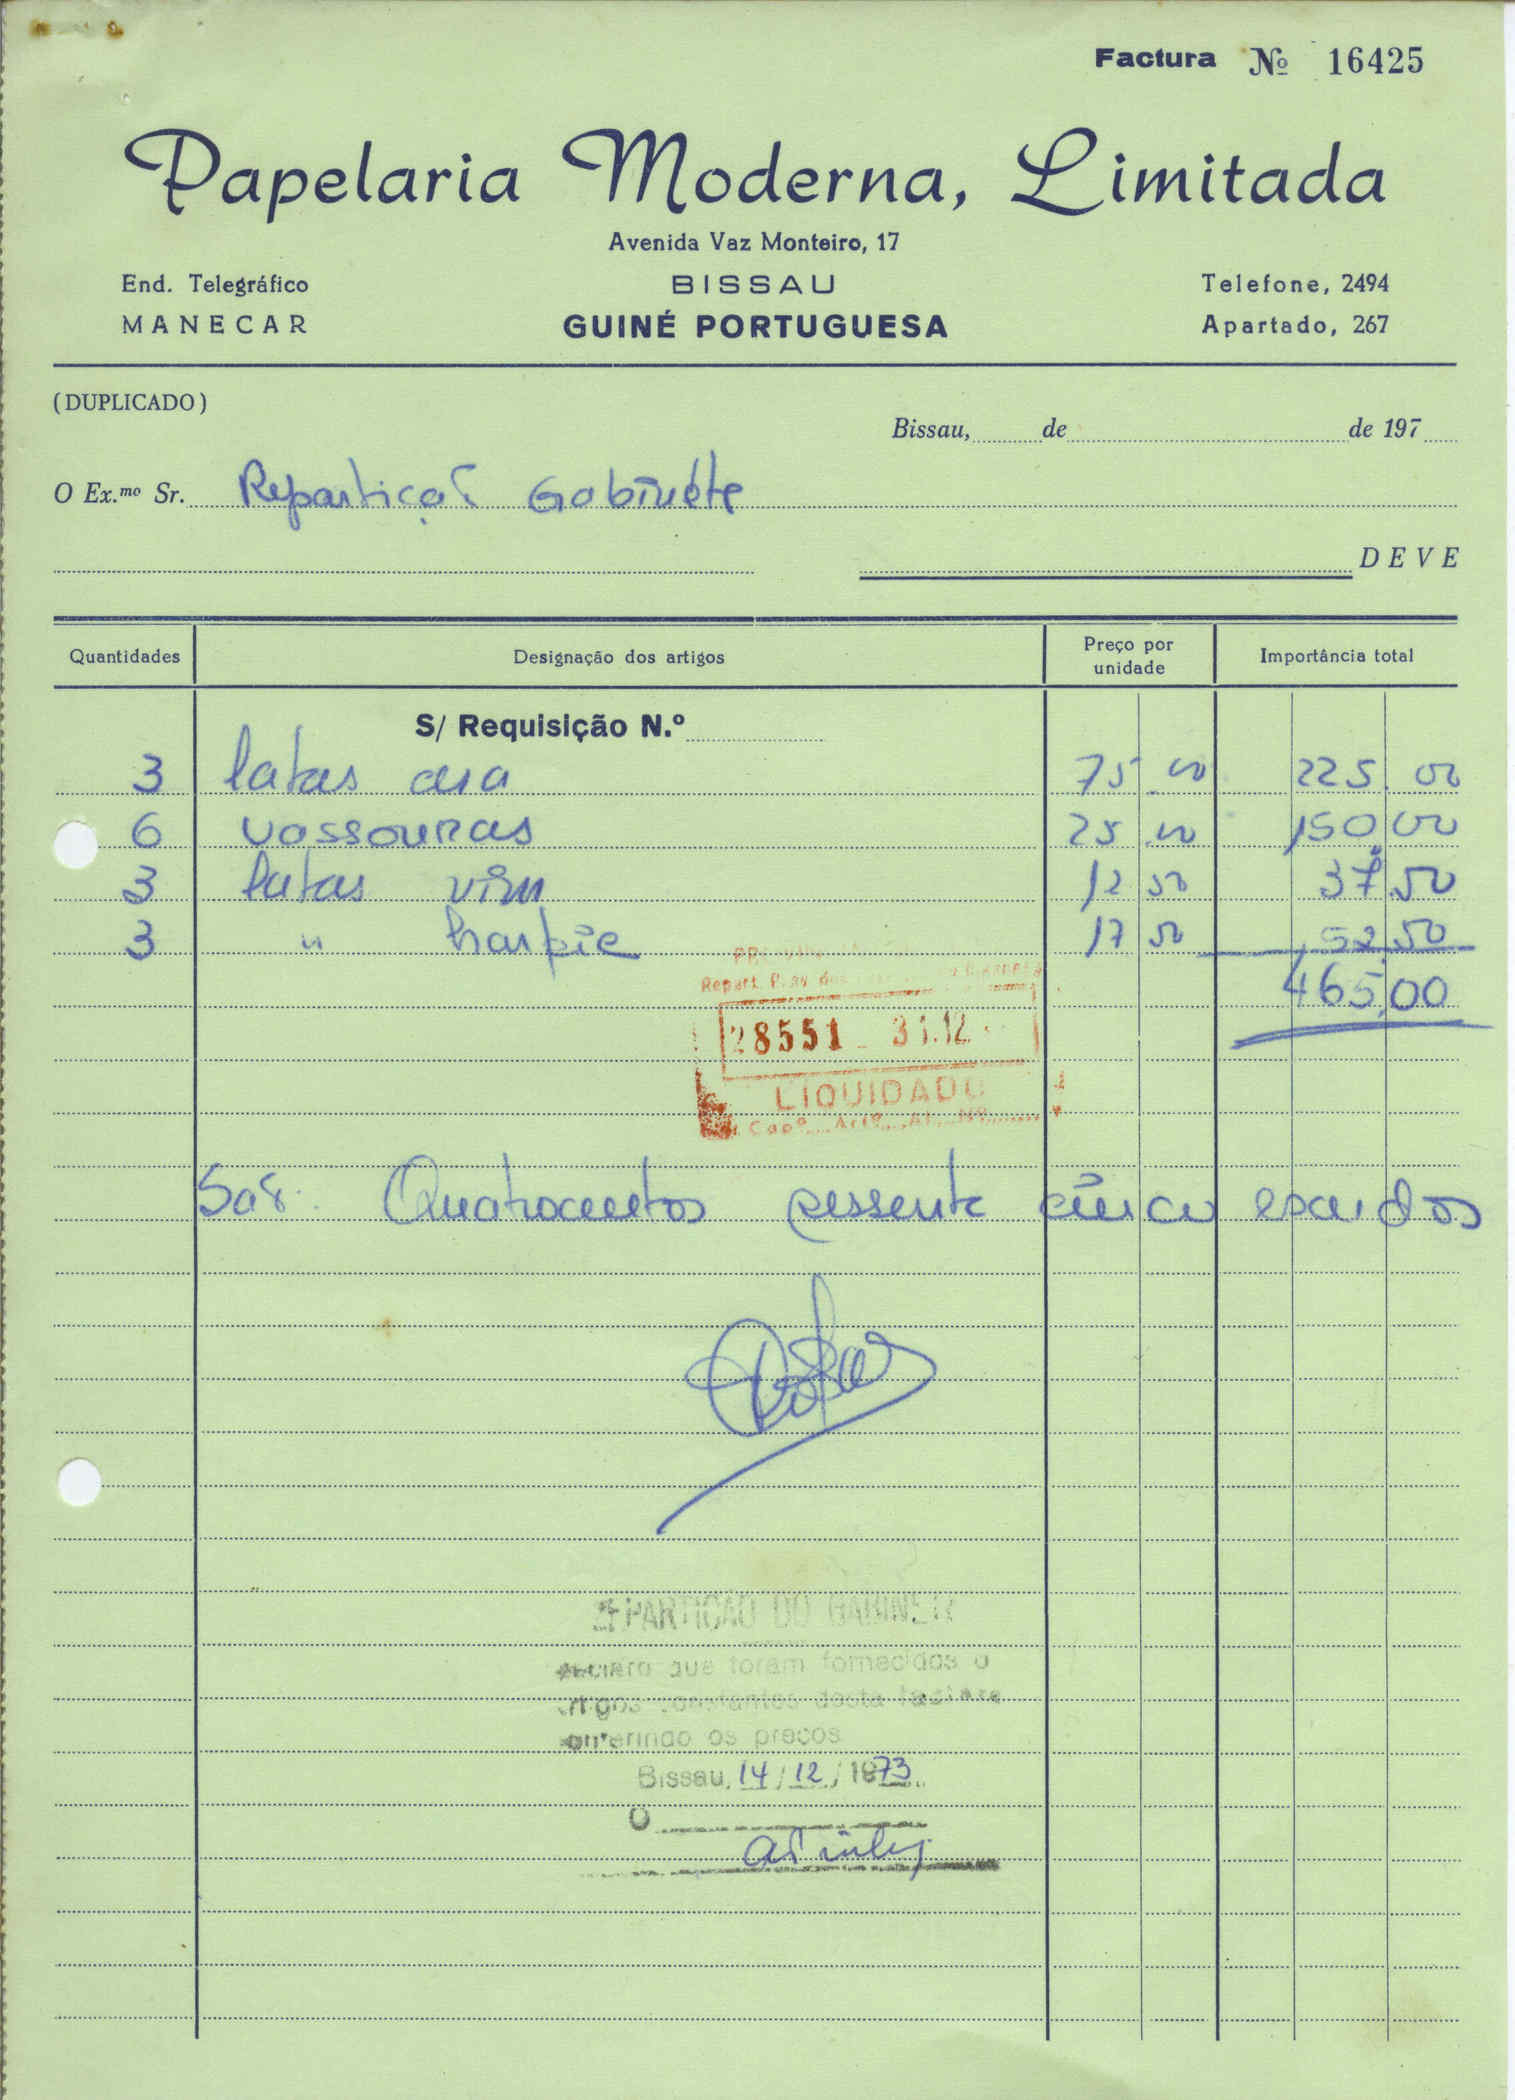 Factura Nº 16425
Papelaria Moderna, Limitada
Avenida Vaz Monteiro, 17
End. Telegráfico BISSAU Telefone, 2494
MANECAR GUINÉ PORTUGUESA Apartado, 267
(DUPLICADO)
Bissau, de de 197
O Ex.mo Sr. Repartição Gabinete
DEVE
Quantidades Designação dos artigos Preço por unidade Importância total
S/ Requisição N.º
3 latas cera 75.00 225.00
6 vassouras 25.00 150,00
3 latas vim 12 50 37,50
3 " harpic 17 50 52,50
465,00
Repart. Prov dos
28551 31.12
LIQUIDADO
Capº Artº Al. Nº
São: Quatrocentos sessenta cinco escudos
REPARTIÇÃO DO GABINETE
Declaro que foram fornecidos o
artigos constantes desta factura
conferindo os preços
Bissau, 14/12/1973
O